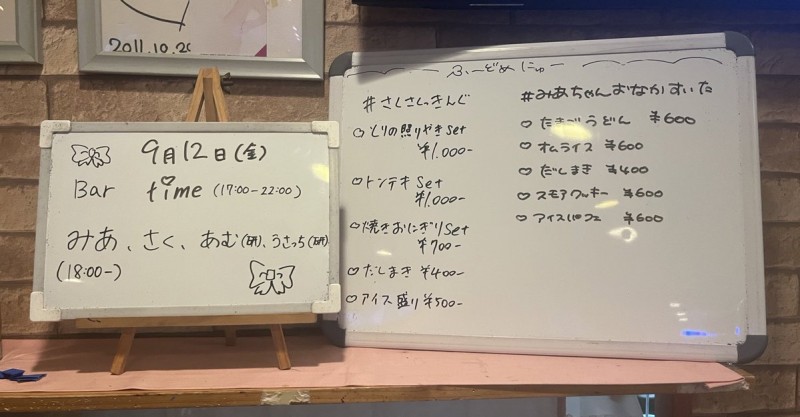 2011.10.20
9月12日(金)
Bar time (17:00-22:00)
みあ、さく、あむ(研)、うさっち(研)
(18:00-)
ふーどめにゅー
#さくさくっきんぐ
とりの照りやきSet
¥1,000-
トンテキSet
¥1,000-
焼きおにぎりSet
¥700-
だしまき ¥400-
アイス盛り ¥500-
#みあちゃんおなかすいた
たまごうどん ¥600
オムライス ¥600
だしまき ¥400
スモアクッキー ¥600
アイスパフェ ¥600